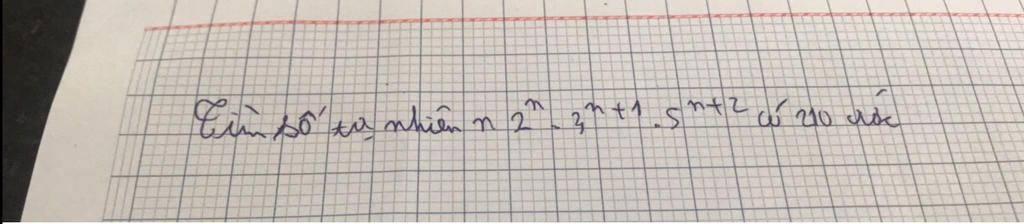 Tìm số tự nhiên n 2^n . 3^{n+1} . 5^{n+2} có 210 ước